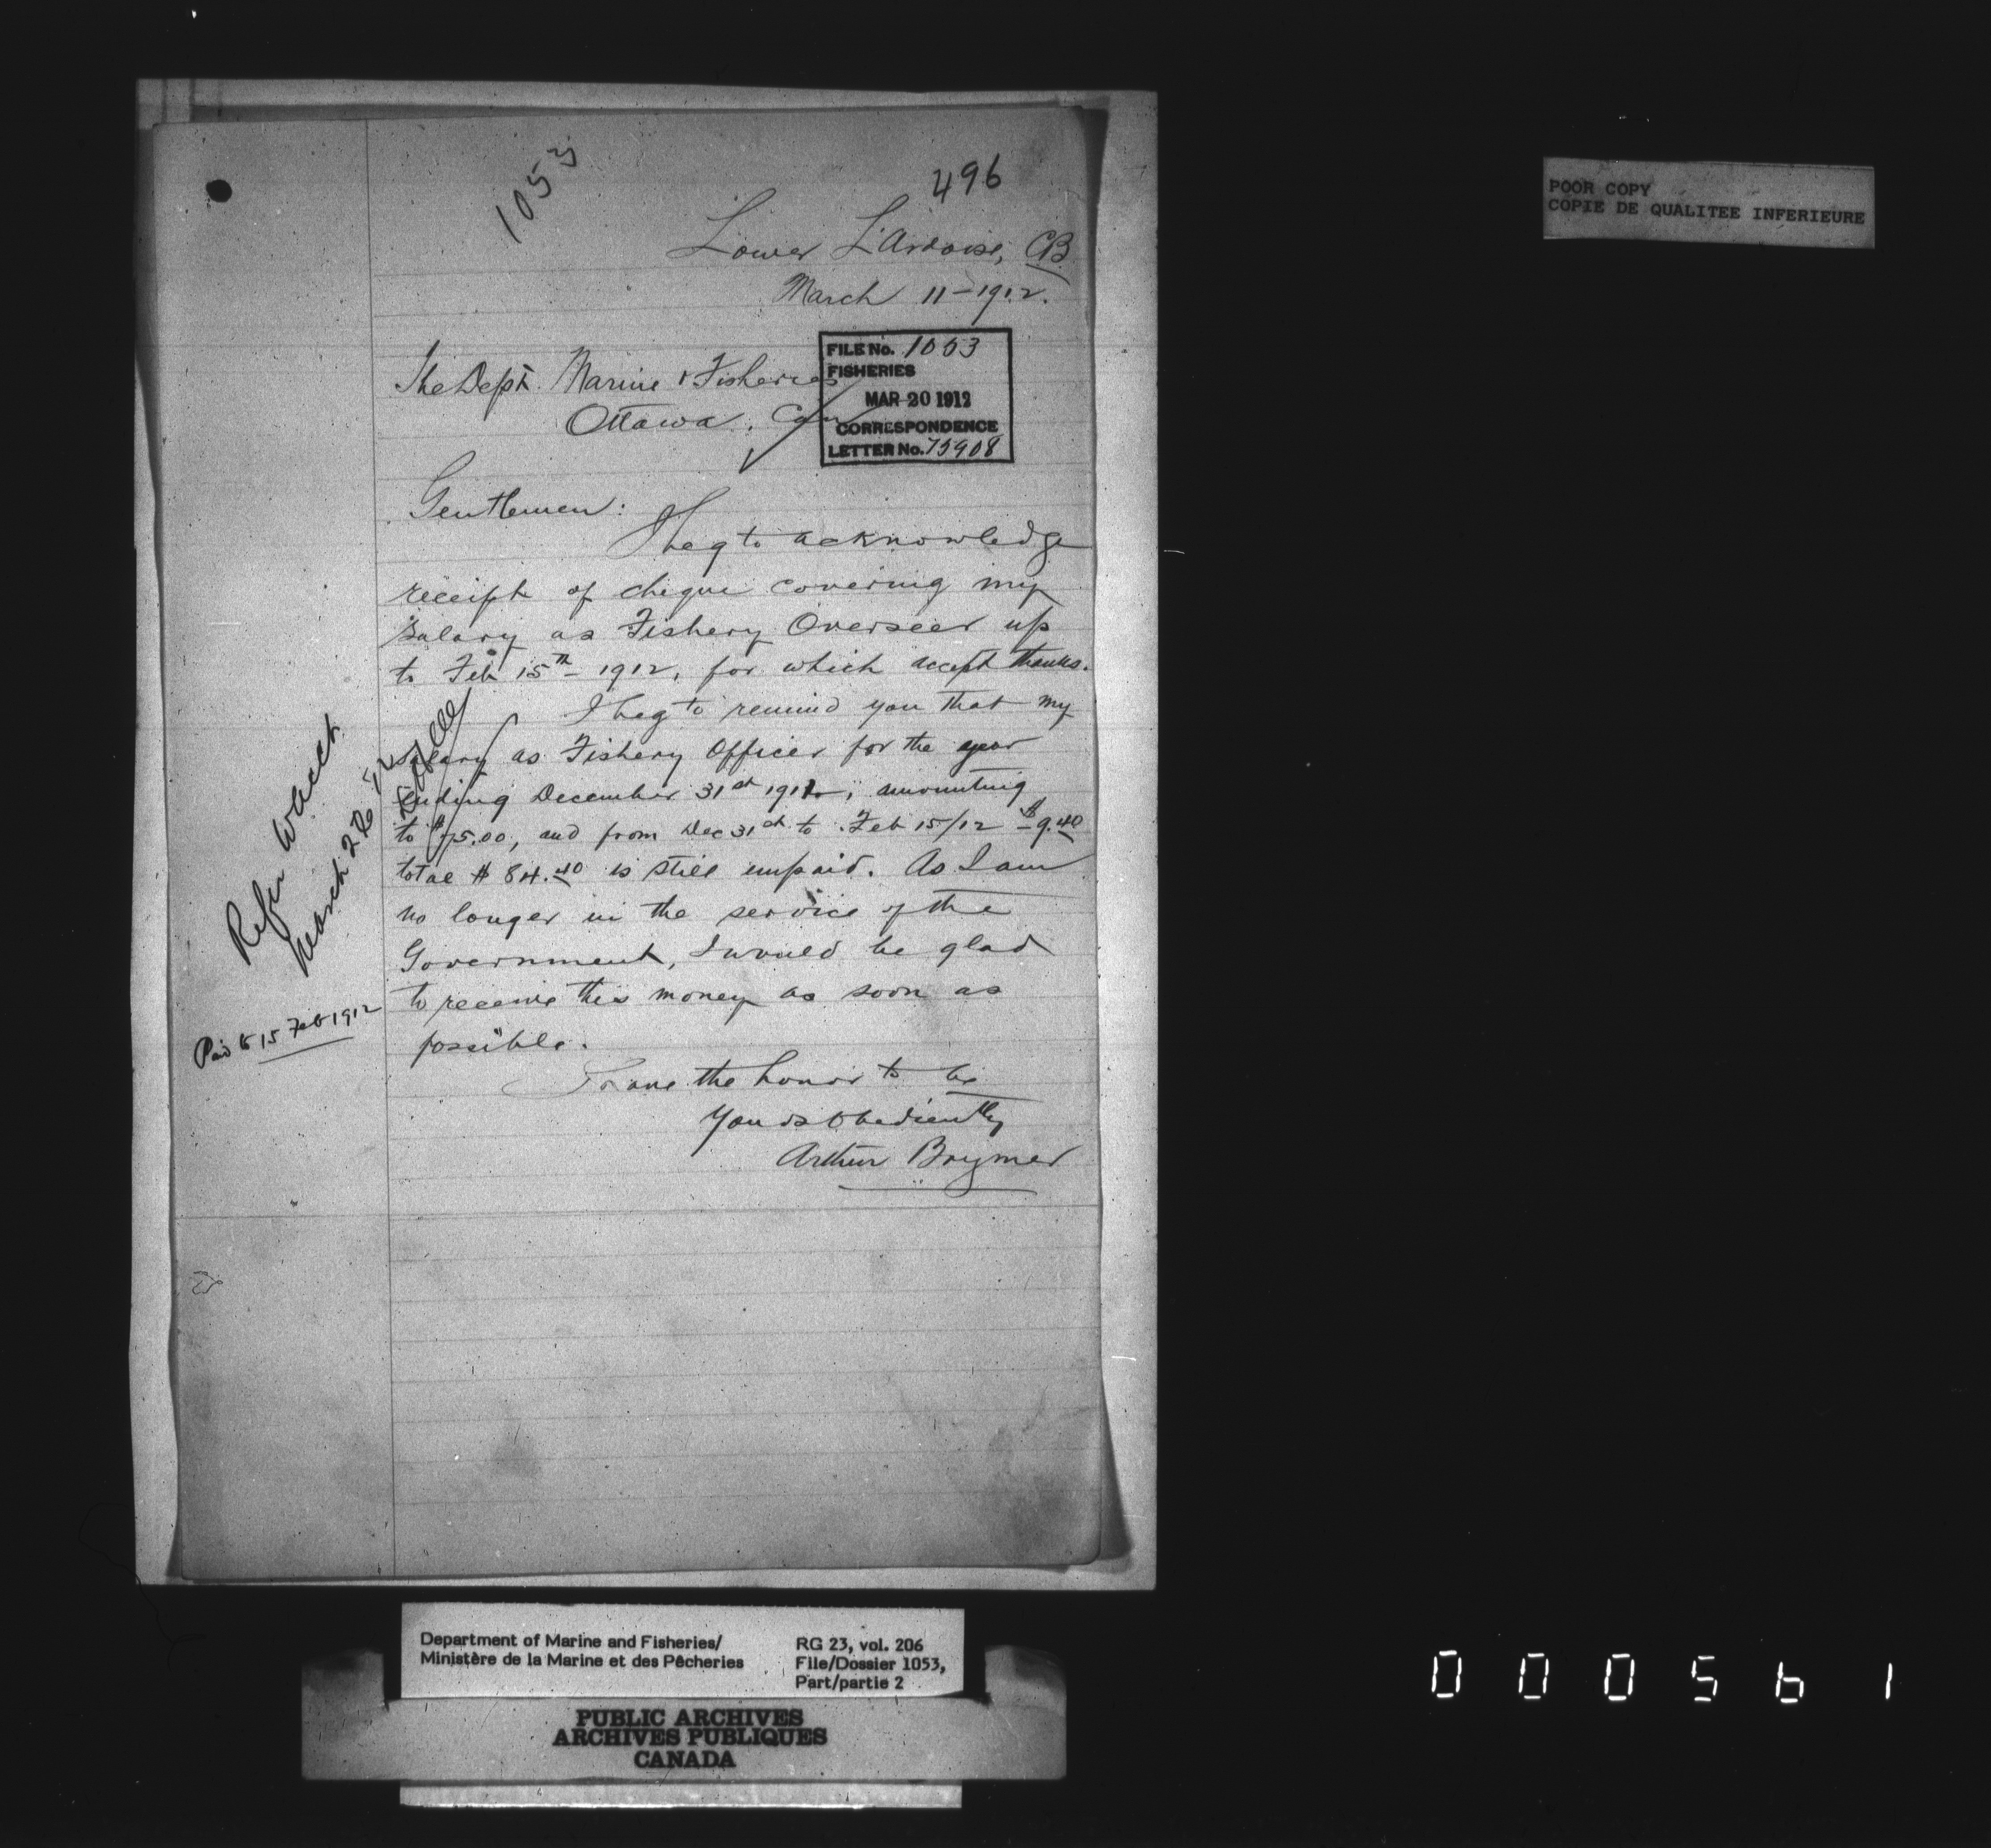 1053
496
Lower L'Ardoise, CB
March 11 - 1912.
The Dept. Marine & Fisheries
Ottawa, Can
FILE No. 1053
FISHERIES
MAR 20 1912
CORRESPONDENCE
LETTER No. 75908
Gentlemen:
I beg to acknowledge
receipt of cheque covering my
salary as Fishery Overseer up
to Feb 15th - 1912, for which accept thanks.
I beg to remind you that my
salary as Fishery Officer for the year
ending December 31st 1911, amounting
to $75.00, and from Dec 31st to Feb 15/12 - $9.40
total $84.40 is still unpaid. As I am
no longer in the service of the
Government, I would be glad
to receive this money as soon as
possible.
I have the honor to be
Yours obediently
Arthur Brymer
Refer
March 22
Paid to 15 Feb 1912
POOR COPY
COPIE DE QUALITEE INFERIEURE
Department of Marine and Fisheries/
Ministère de la Marine et des Pêcheries
RG 23, vol. 206
File/Dossier 1053,
Part/partie 2
PUBLIC ARCHIVES
ARCHIVES PUBLIQUES
CANADA
000561